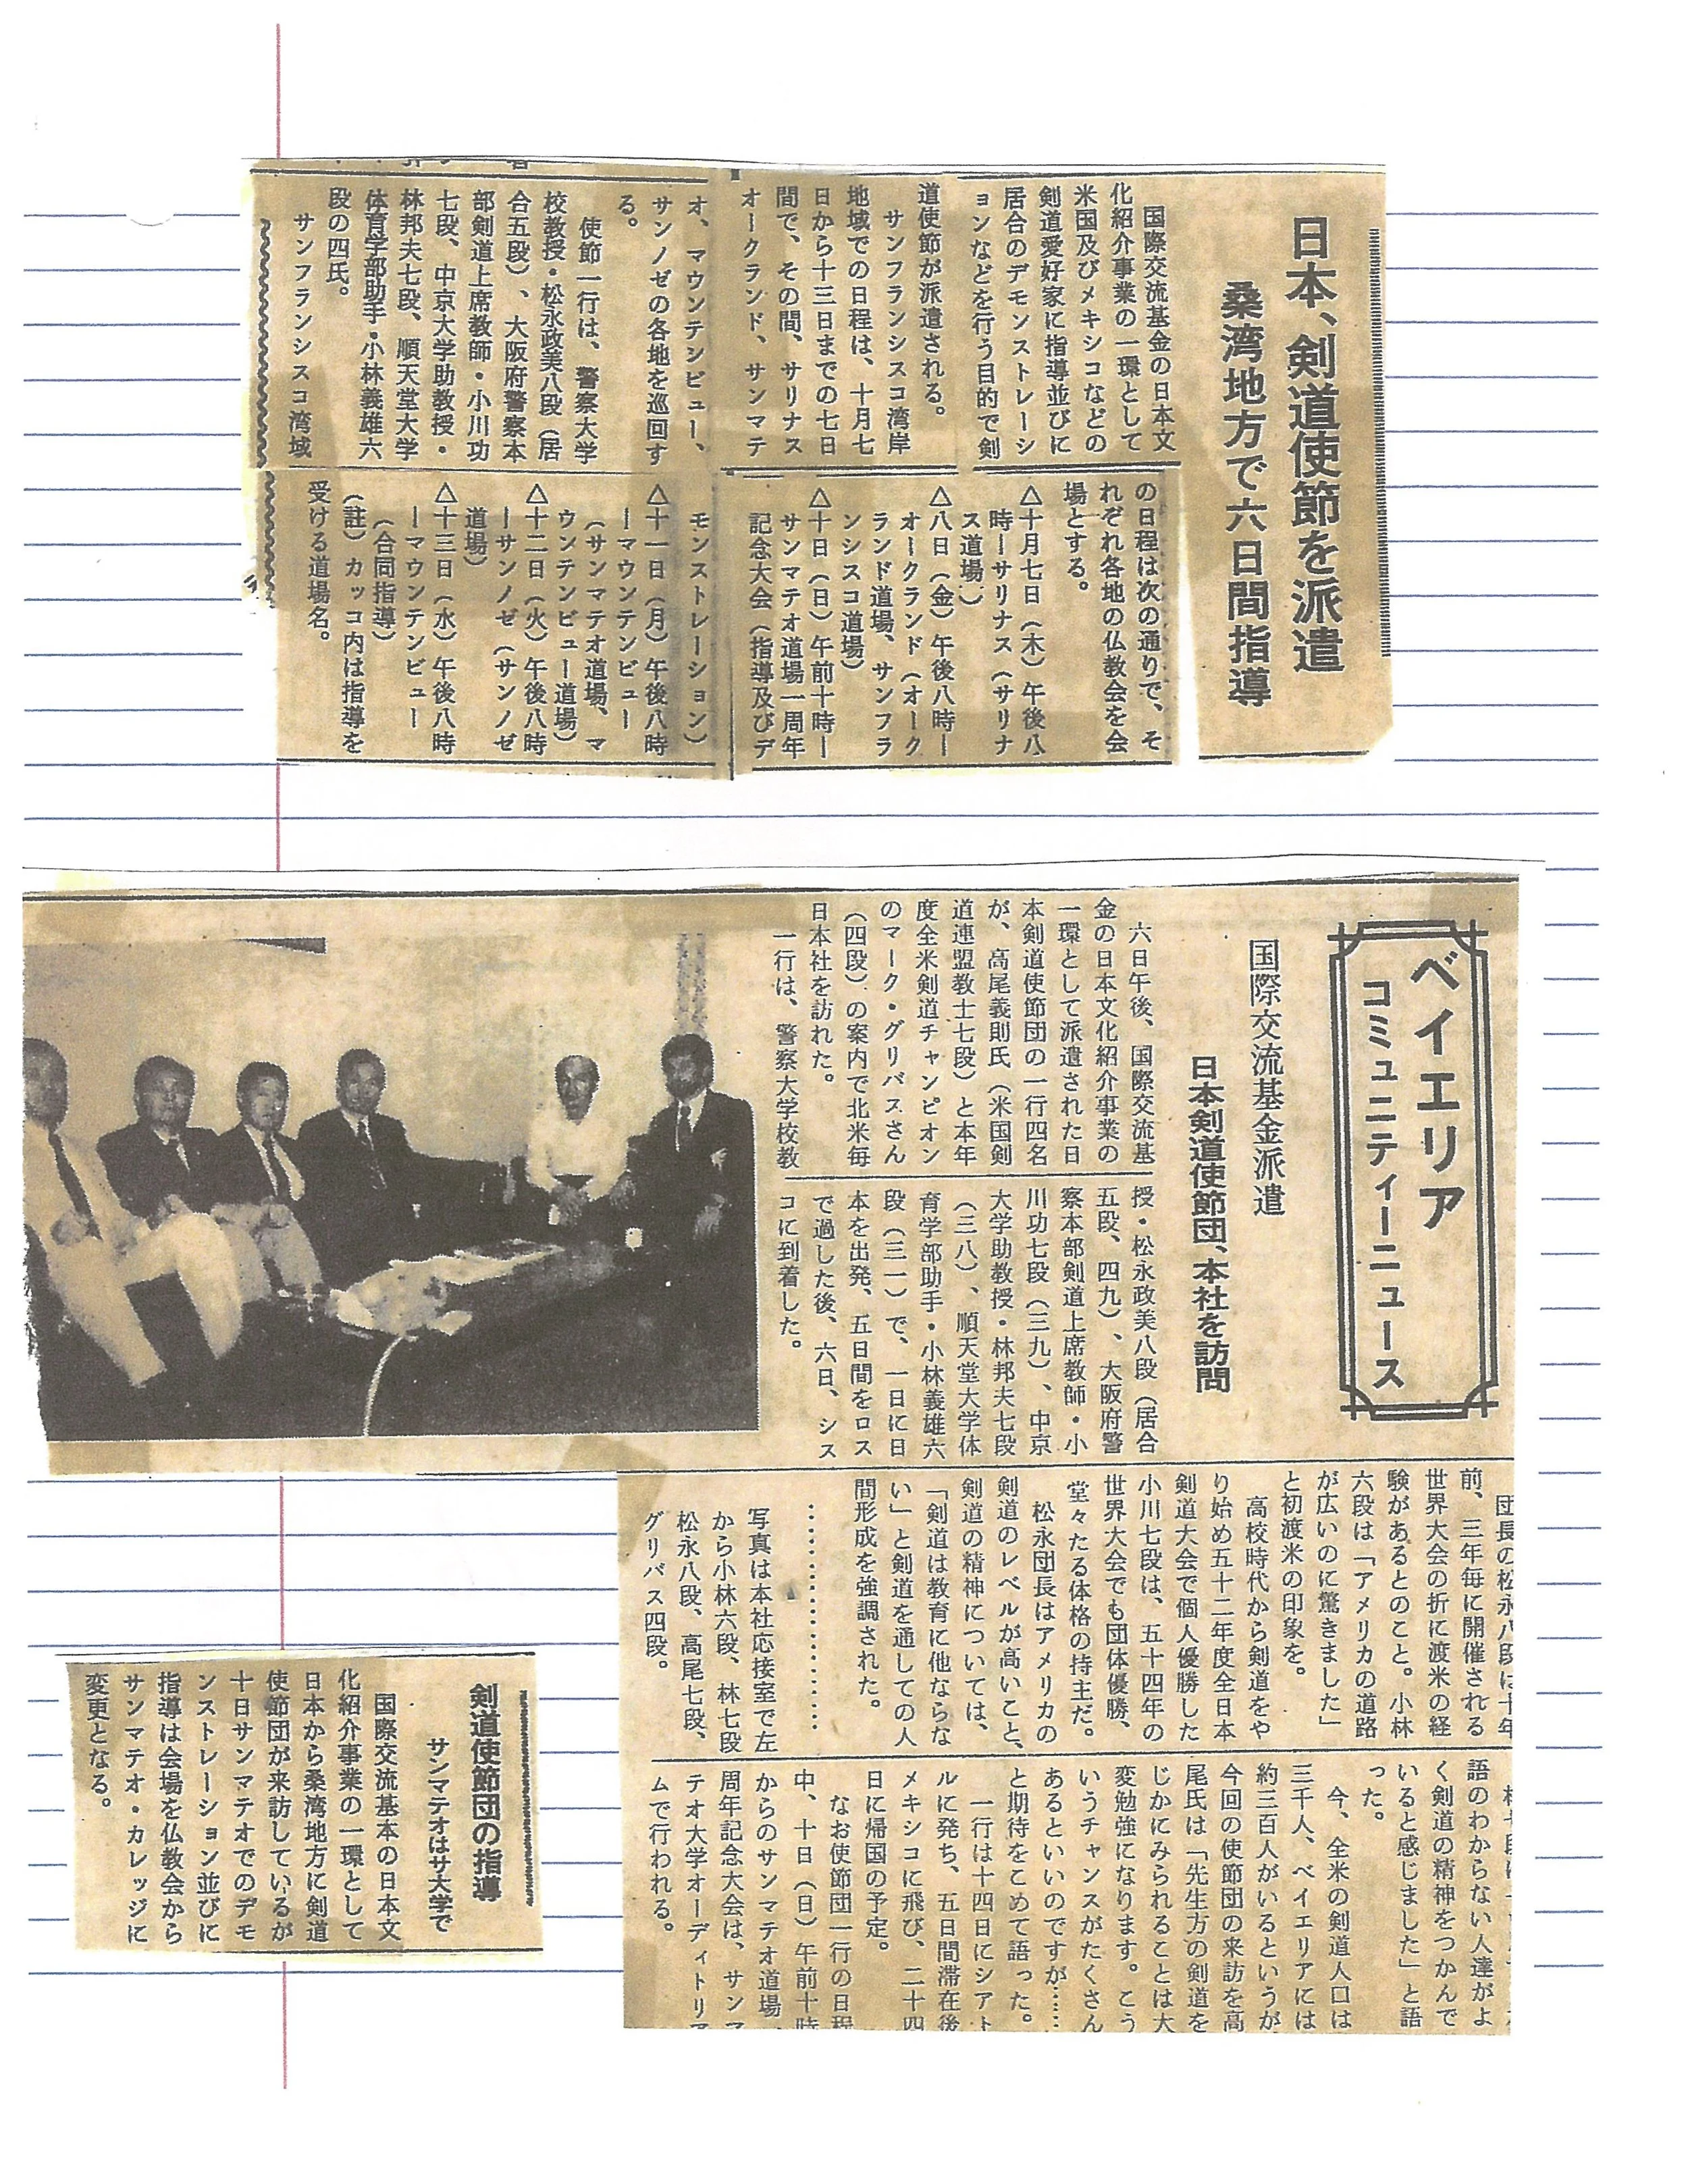 日本、剣道使節を派遣
桑湾地方で六日間指導
国際交流基金の日本文
化紹介事業の一環として
米国及びメキシコなどの
剣道愛好家に指導並びに
居合のデモンストレーシ
ョンなどを行う目的で剣
道使節が派遣される。
サンフランシスコ湾岸
地域での日程は、十月七
日から十三日までの七日
間で、その間、サリナス
オークランド、サンマテ
オ、マウンテンビュー、
サンノゼの各地を巡回す
る。
使節一行は、警察大学
校教授・松永政美八段（居
合五段）、大阪府警察本
部剣道上席教師・小川功
七段、中京大学助教授・
林邦夫七段、順天堂大学
体育学部助手・小林義雄六
段の四氏。
サンフランシスコ湾域
の日程は次の通りで、そ
れぞれ各地の仏教会を会
場とする。
△十月七日（木）午後八
時ーサリナス（サリナ
ス道場）
△八日（金）午後八時ー
オークランド（オーク
ランド道場、サンフラ
ンシスコ道場）
△十日（日）午前十時ー
サンマテオ道場一周年
記念大会（指導及びデ
モンストレーション）
△十一日（月）午後八時
ーマウンテンビュー
（サンマテオ道場、マ
ウンテンビュー道場）
△十二日（火）午後八時
ーサンノゼ（サンノゼ
道場）
△十三日（水）午後八時
ーマウンテンビュー
（合同指導）
（註）カッコ内は指導を
受ける道場名。
ベイエリア
コミュニティーニュース
国際交流基金派遣
日本剣道使節団、本社を訪問
六日午後、国際交流基
金の日本文化紹介事業の
一環として派遣された日
本剣道使節団の一行四名
が、高尾義則氏（米国剣
道連盟教士七段）と本年
度全米剣道チャンピオン
のマーク・グリバスさん
（四段）の案内で北米毎
日本社を訪れた。
一行は、警察大学校教
授・松永政美八段（居合
五段、四九）、大阪府警
察本部剣道上席教師・小
川功七段（三九）、中京
大学助教授・林邦夫七段
（三八）、順天堂大学体
育学部助手・小林義雄六
段（三一）で、一日に日
本を出発、五日間をロス
で過した後、六日、シス
コに到着した。
団長の松永八段は十年
前、三年毎に開催される
世界大会の折に渡米の経
験があるとのこと。小林
六段は「アメリカの道路
が広いのに驚きました」
と初渡米の印象を。
高校時代から剣道をや
り始め五十二年度全日本
剣道大会で個人優勝した
小川七段は、五十四年の
世界大会でも団体優勝、
堂々たる体格の持主だ。
松永団長はアメリカの
剣道のレベルが高いこと、
剣道の精神については、
「剣道は教育に他ならな
い」と剣道を通しての人
間形成を強調された。
………………
写真は本社応接室で左
から小林六段、林七段
松永八段、高尾七段、
グリバス四段。
語のわからない人達がよ
く剣道の精神をつかんで
いると感じました」と語
った。
今、全米の剣道人口は
三千人、ベイエリアには
約三百人がいるというが
今回の使節団の来訪を高
尾氏は「先生方の剣道を
じかにみられることは大
変勉強になります。こう
いうチャンスがたくさん
あるといいのですが……
と期待をこめて語った。
一行は十四日にシアト
ルに発ち、五日間滞在後
メキシコに飛び、二十四
日に帰国の予定。
なお使節団一行の日程
中、十日（日）午前十時
からのサンマテオ道場一
周年記念大会は、サンマ
テオ大学オーディトリア
ムで行われる。
剣道使節団の指導
サンマテオはサ大学で
国際交流基本の日本文
化紹介事業の一環として
日本から桑湾地方に剣道
使節団が来訪しているが
十日サンマテオでのデモ
ンストレーション並びに
指導は会場を仏教会から
サンマテオ・カレッジに
変更となる。